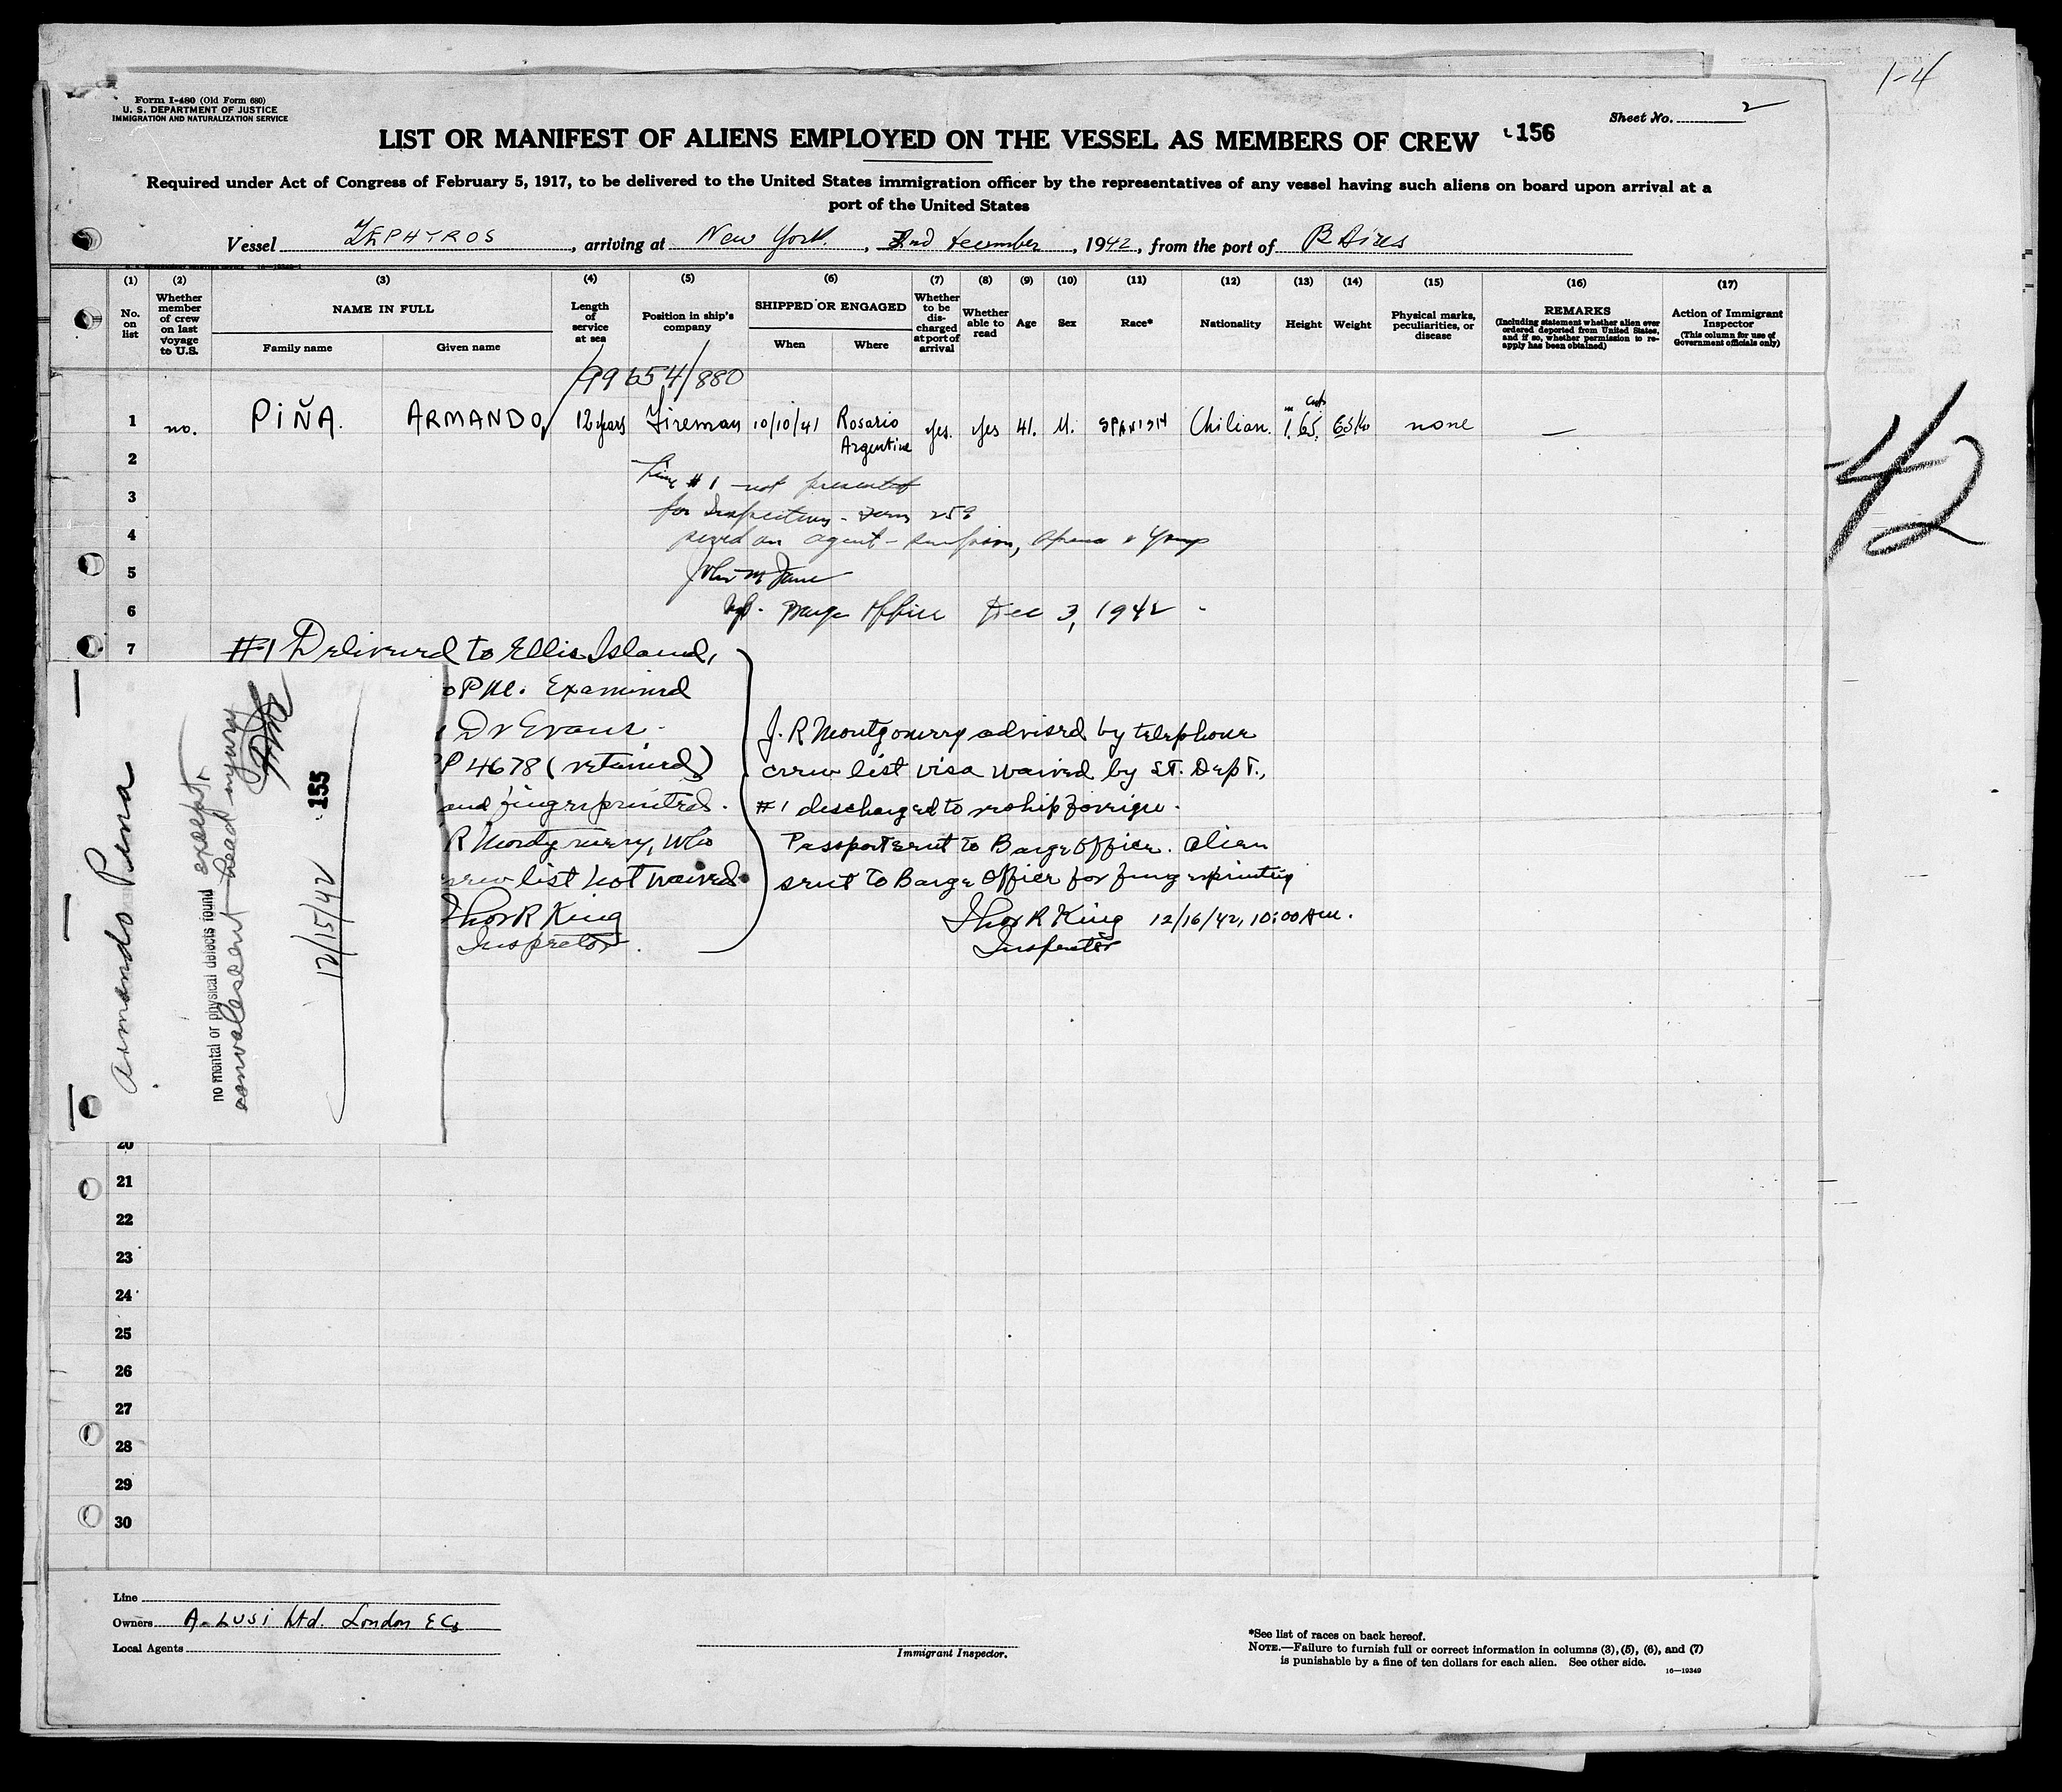 1-4
Form I-480 (Old Form 680)
U. S. DEPARTMENT OF JUSTICE
IMMIGRATION AND NATURALIZATION SERVICE
Sheet No. 2
LIST OR MANIFEST OF ALIENS EMPLOYED ON THE VESSEL AS MEMBERS OF CREW 156
Required under Act of Congress of February 5, 1917, to be delivered to the United States immigration officer by the representatives of any vessel having such aliens on board upon arrival at a
port of the United States
Vessel ZEPHYROS, arriving at New York, 2nd December, 1942, from the port of B Aires
(1) No. on list
(2) Whether member of crew on last voyage to U.S.
(3) NAME IN FULL
Family name
Given name
(4) Length of service at sea
(5) Position in ship's company
(6) SHIPPED OR ENGAGED
When
Where
(7) Whether to be discharged at port of arrival
(8) Whether able to read
(9) Age
(10) Sex
(11) Race*
(12) Nationality
(13) Height
(14) Weight
(15) Physical marks, peculiarities, or disease
(16) REMARKS (Including statement whether alien ever ordered deported from United States, and if so, whether permission to reapply has been obtained)
(17) Action of Immigrant Inspector (This column for use of Government officials only)
99654/880
1 no. PIÑA. ARMANDO, 12 years Fireman 10/10/41 Rosario Argentine yes. yes 41. M. SPANISH Chilian. 1.65. 65 none —
42
2
Line # 1 not presented
3
for Inspection - 259
4
served on agent -
5
John M
6
Barge Office Dec 3, 1942
7 #1 Delivered to Ellis Island,
PM. Examined
Dr Evans.
P 4678 (retained)
and fingerprinted.
R Montgomery, who
crew list not waived
Thos R King
Inspector.
J. R Montgomery advised by telephone
crew list visa waived by ST. DEPT.,
#1 discharged to reship foreign.
Passport sent to Barge Office. alien
sent to Barge Office for fingerprinting
Thos R King 12/16/42, 10:00 AM.
Inspector
Armando Pena
no mental or physical defects found except,
convalescent head injury
155
12/15/42
20
21
22
23
24
25
26
27
28
29
30
Line
Owners A. LUSI Ltd. London EC3
Local Agents
Immigrant Inspector.
*See list of races on back hereof.
NOTE.—Failure to furnish full or correct information in columns (3), (5), (6), and (7)
is punishable by a fine of ten dollars for each alien. See other side.
16—19349